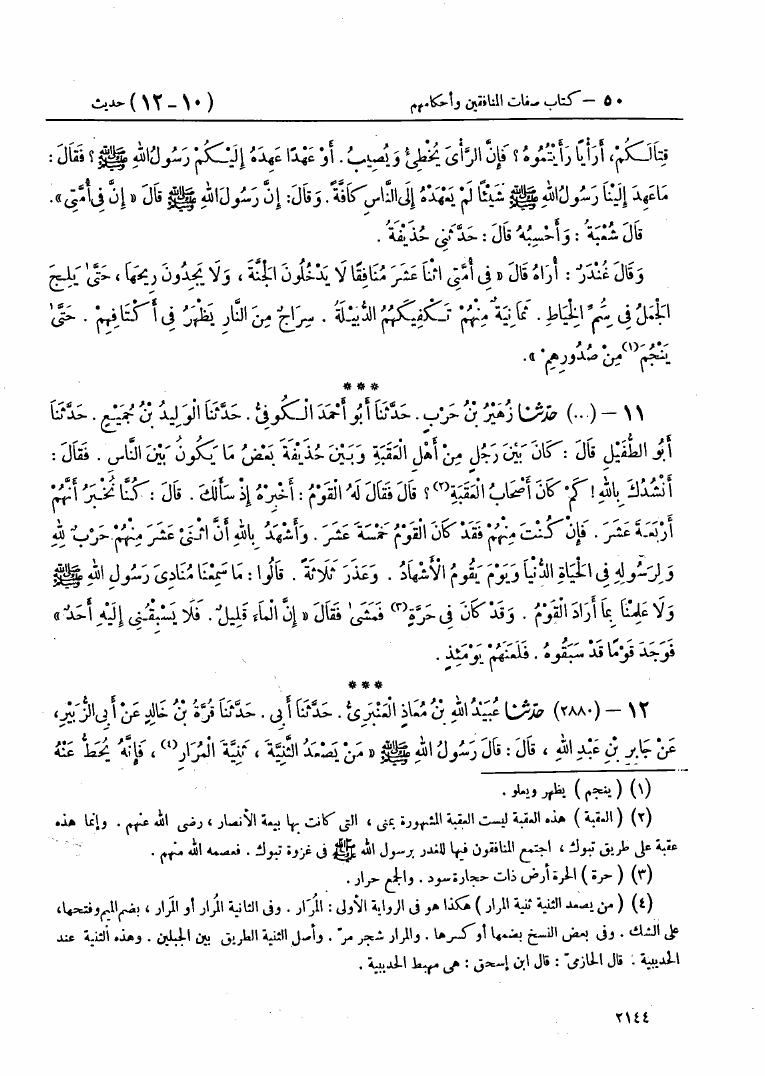 ٥٠ — كتاب صفات المنافقين وأحكامهم (١٠ - ١٢) حديث
قِتَالَكُمْ، أَرَأْيًا رَأَيْتُمُوهُ؟ فَإِنَّ الرَّأْىَ يُخْطِئُ وَيُصِيبُ. أَوْ عَهْدًا عَهِدَهُ إِلَيْكُمْ رَسُولُ اللهِ ﷺ؟ فَقَالَ:
مَا عَهِدَ إِلَيْنَا رَسُولُ اللهِ ﷺ شَيْئًا لَمْ يَعْهَدْهُ إِلَى النَّاسِ كَافَّةً. وَقَالَ: إِنَّ رَسُولَ اللهِ ﷺ قَالَ « إِنَّ فِى أُمَّتِى ».
قَالَ شُعْبَةُ : وَأَحْسِبُهُ قَالَ : حَدَّثَنِى حُذَيْفَةُ .
وَقَالَ غُنْدَرٌ : أُرَاهُ قَالَ « فِى أُمَّتِى اثْنَا عَشَرَ مُنَافِقًا لَا يَدْخُلُونَ الْجَنَّةَ ، وَلَا يَجِدُونَ رِيحَهَا ، حَتَّىٰ يَلِجَ
الْجَمَلُ فِى سَمِّ الْخِيَاطِ . ثَمَانِيَةٌ مِنْهُمْ تَكْفِيكَهُمُ الدُّبَيْلَةُ . سِرَاجٌ مِنَ النَّارِ يَظْهَرُ فِى أَكْتَافِهِمْ . حَتَّىٰ
يَنْجُمَ(١) مِنْ صُدُورِهِمْ ».
***
١١ — (...) حَدَّثَنَا زُهَيْرُ بْنُ حَرْبٍ . حَدَّثَنَا أَبُو أَحْمَدَ الْكُوفِىُّ . حَدَّثَنَا الْوَلِيدُ بْنُ جُمَيْعٍ . حَدَّثَنَا
أَبُو الطُّفَيْلِ قَالَ : كَانَ بَيْنَ رَجُلٍ مِنْ أَهْلِ الْعَقَبَةِ وَبَيْنَ حُذَيْفَةَ بَعْضُ مَا يَكُونُ بَيْنَ النَّاسِ . فَقَالَ :
أَنْشُدُكَ بِاللهِ ! كَمْ كَانَ أَصْحَابُ الْعَقَبَةِ(٢) ؟ قَالَ فَقَالَ لَهُ الْقَوْمُ : أَخْبِرْهُ إِذْ سَأَلَكَ . قَالَ : كُنَّا نُخْبَرُ أَنَّهُمْ
أَرْبَعَةَ عَشَرَ . فَإِنْ كُنْتَ مِنْهُمْ فَقَدْ كَانَ الْقَوْمُ خَمْسَةَ عَشَرَ . وَأَشْهَدُ بِاللهِ أَنَّ اثْنَىْ عَشَرَ مِنْهُمْ حَرْبٌ لِلهِ
وَلِرَسُولِهِ فِى الْحَيَاةِ الدُّنْيَا وَيَوْمَ يَقُومُ الْأَشْهَادُ . وَعَذَرَ ثَلَاثَةً . قَالُوا : مَا سَمِعْنَا مُنَادِىَ رَسُولِ اللهِ ﷺ
وَلَا عَلِمْنَا بِمَا أَرَادَ الْقَوْمُ . وَقَدْ كَانَ فِى حَرَّةٍ(٣) فَمَشَىٰ فَقَالَ « إِنَّ الْمَاءَ قَلِيلٌ . فَلَا يَسْبِقُنِى إِلَيْهِ أَحَدٌ »
فَوَجَدَ قَوْمًا قَدْ سَبَقُوهُ . فَلَعَنَهُمْ يَوْمَئِذٍ .
***
١٢ — (٢٨٨٠) حَدَّثَنَا عُبَيْدُ اللهِ بْنُ مُعَاذٍ الْعَنْبَرِىُّ . حَدَّثَنَا أَبِى . حَدَّثَنَا قُرَّةُ بْنُ خَالِدٍ عَنْ أَبِى الزُّبَيْرِ،
عَنْ جَابِرِ بْنِ عَبْدِ اللهِ ، قَالَ : قَالَ رَسُولُ اللهِ ﷺ « مَنْ يَصْعَدُ الثَّنِيَّةَ ، ثَنِيَّةَ الْمُرَارِ(٤) ، فَإِنَّهُ يُحَطُّ عَنْهُ
(١) ( ينجم ) يظهر ويعلو .
(٢) ( العقبة ) هذه العقبة ليست العقبة المشهورة بمنى ، التى كانت بها بيعة الأنصار ، رضى الله عنهم . وإنما هذه
عقبة على طريق تبوك ، اجتمع المنافقون فيها للغدر برسول الله ﷺ فى غزوة تبوك . فعصمه الله منهم .
(٣) ( حرة ) الحرة أرض ذات حجارة سود . والجمع حرار .
(٤) ( من يصعد الثنية ثنية المرار ) هكذا هو فى الرواية الأولى : المُرَار . وفى الثانية المُرار أو المَرار ، بضم الميم وفتحها،
على الشك . وفى بعض النسخ بضمها أو كسرها . والمرار شجر مرّ . وأصل الثنية الطريق بين الجبلين . وهذه الثنية عند
الحديبية . قال الحازمىّ : قال ابن إسحق : هى مهبط الحديبية .
٢١٤٤